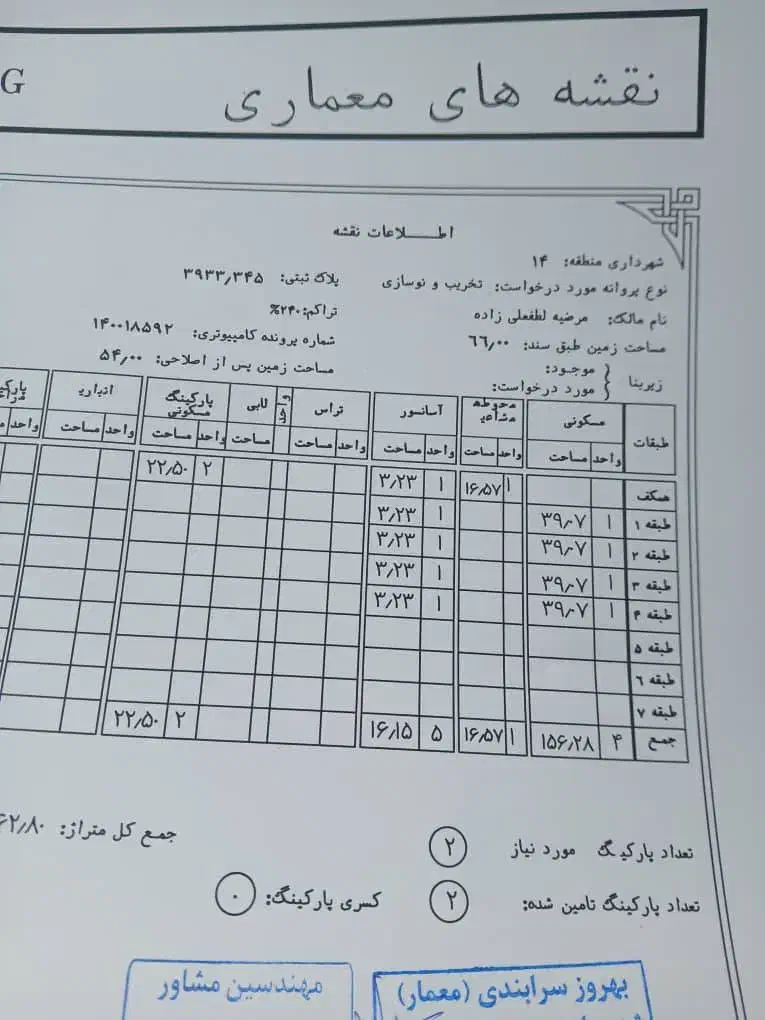 G
نقشه های معماری
اطـــلاعات نقشه
شهرداری منطقه: ۱۴
نوع پروانه مورد درخواست: تخریب و نوسازی
پلاک ثبتی: ۳۹۳۳٫۳۴۵
نام مالک: مرضیه لطفعلی زاده
تراکم: ۲۴۰%
مساحت زمین طبق سند: ۶۶٫۰۰
شماره پرونده کامپیوتری: ۱۴۰۰۱۸۵۹۲
زیربنا { موجود:
مورد درخواست:
مساحت زمین پس از اصلاحی: ۵۴٫۰۰
طبقات مسکونی محوطه مشاعی آسانسور تراس واحد لابی پارکینگ مسکونی انباری
واحد مساحت واحد مساحت واحد مساحت واحد مساحت مساحت واحد مساحت واحد مساحت واحد
همکف ۱ ۱۶٫۵۷ ۱ ۳٫۲۳ ۲ ۲۲٫۵۰
طبقه ۱ ۱ ۳۹٫۰۷ ۱ ۳٫۲۳
طبقه ۲ ۱ ۳۹٫۰۷ ۱ ۳٫۲۳
طبقه ۳ ۱ ۳۹٫۰۷ ۱ ۳٫۲۳
طبقه ۴ ۱ ۳۹٫۰۷ ۱ ۳٫۲۳
طبقه ۵
طبقه ۶
طبقه ۷
جمع ۴ ۱۵۶٫۲۸ ۱ ۱۶٫۵۷ ۵ ۱۶٫۱۵ ۲ ۲۲٫۵۰
تعداد پارکیگ مورد نیاز ۲
جمع کل متراژ: ۶۲٫۸۰
تعداد پارکینگ تامین شده: ۲
کسری پارکینگ: ۰
بهروز سرابندی (معمار)
مهندسین مشاور